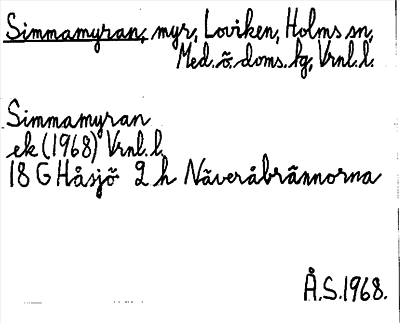 Simmamyran, myr, Loviken, Holms sn,
Med. ö. doms. hg, Vrnl. l.
Simmamyran
ek (1968) Vrnl. l.
18 G Håsjö 2 h Näveråbrännorna
Å.S. 1968.